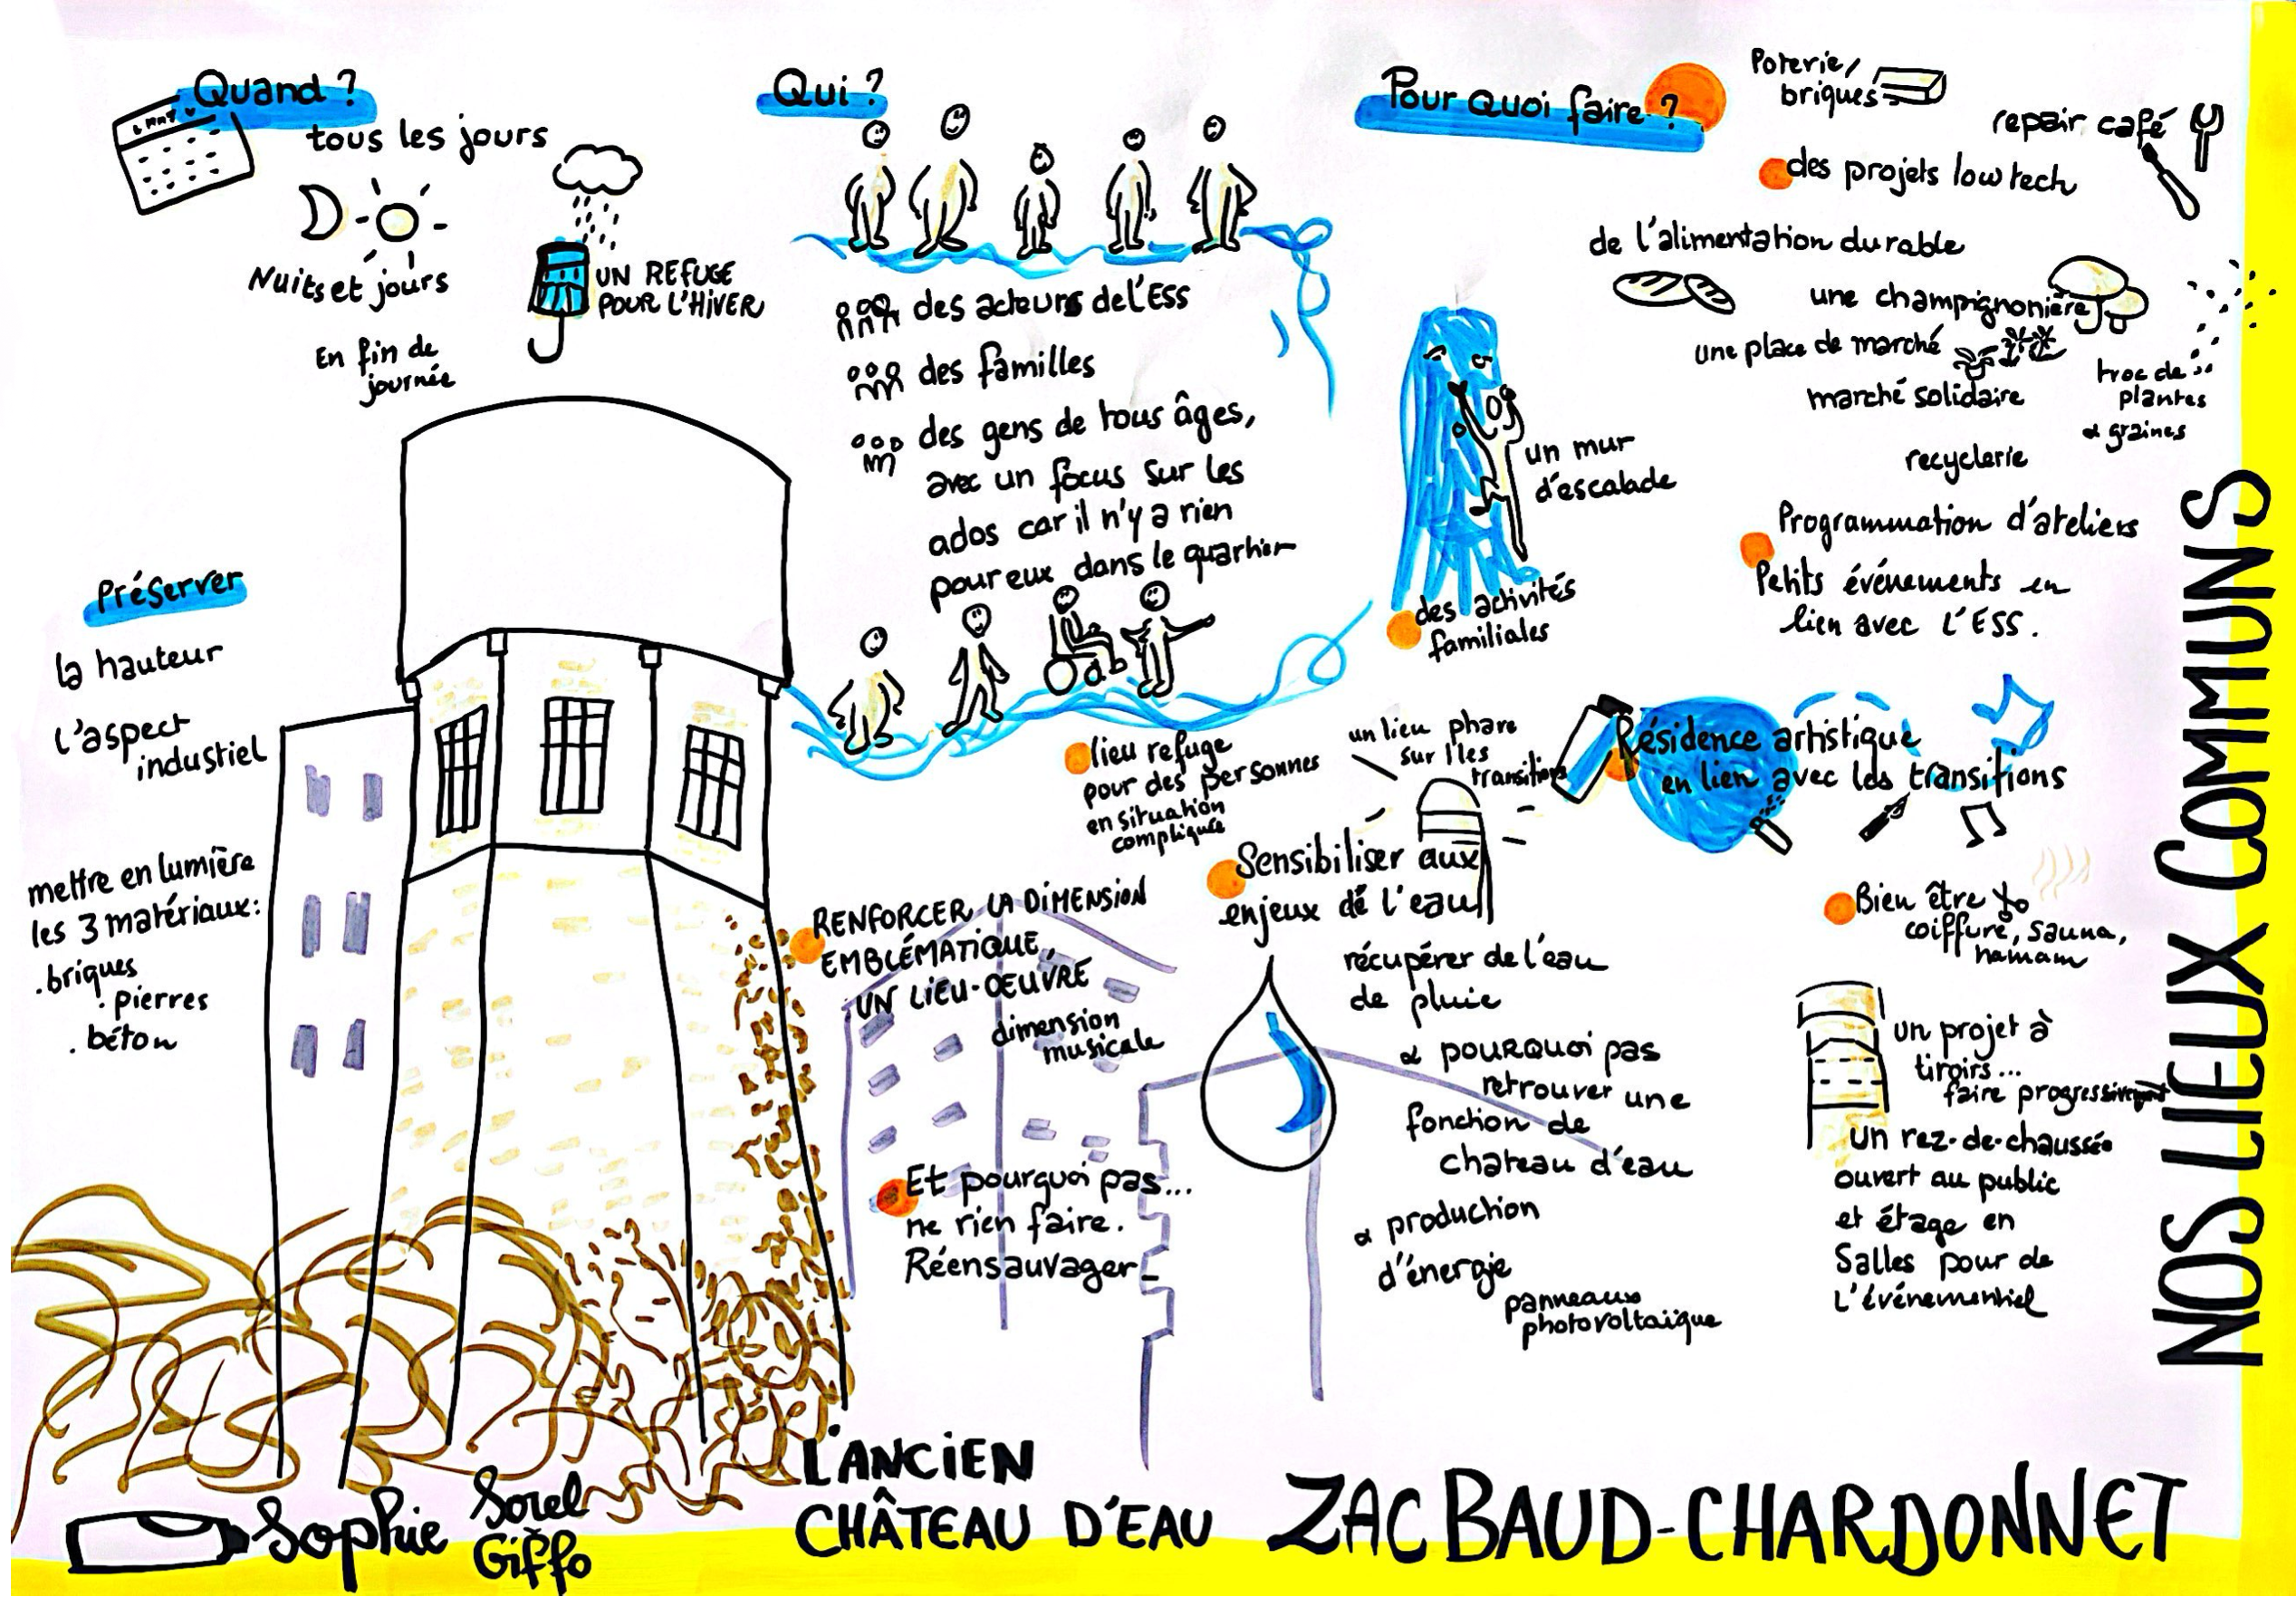 Quand ?
tous les jours
Nuits et jours
UN REFUGE
POUR L'HIVER
En fin de
journée
Préserver
la hauteur
l'aspect
industiel
mettre en lumière
les 3 matériaux:
.briques
. pierres
. béton
Qui ?
des acteurs de l'ESS
des familles
des gens de tous âges,
avec un focus sur les
ados car il n'y a rien
pour eux dans le quartier
lieu refuge
pour des personnes
en situation
compliquée
RENFORCER LA DIMENSION
EMBLÉMATIQUE,
UN LIEU-OEUVRE
dimension
musicale
Et pourquoi pas...
ne rien faire.
Réensauvager
Pour quoi faire ?
Poterie/
briques
repair café
des projets low tech
de l'alimentation durable
une champignonière
une place de marché
troc de
plantes
& graines
marché solidaire
recyclerie
un mur
d'escalade
des activités
familiales
Programmation d'ateliers
Petits événements en
lien avec l'ESS.
un lieu phare
sur les
transitions
Résidence artistique
en lien avec les transitions
Sensibiliser aux
enjeux de l'eau
récupérer de l'eau
de pluie
& pourquoi pas
retrouver une
fonction de
chateau d'eau
& production
d'énergie
panneaux
photovoltaïque
Bien être
coiffure, sauna,
hamam
un projet à
tiroirs...
faire progressivement
un rez-de-chaussée
ouvert au public
et étage en
Salles pour de
l'événementiel
NOS LIEUX COMMUNS
Sophie Sorel
Giffo
L'ANCIEN
CHÂTEAU D'EAU
ZAC BAUD-CHARDONNET